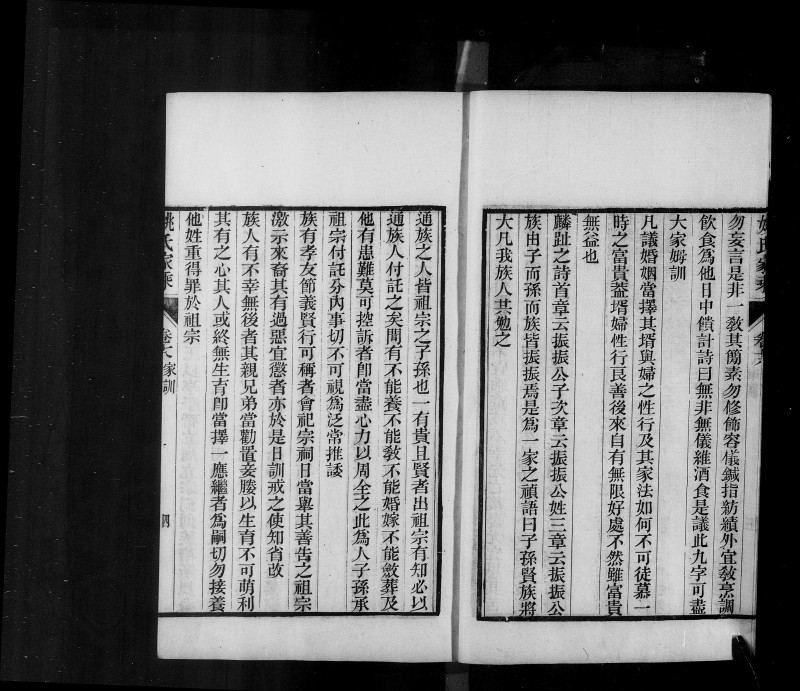 勿妄言是非一敎其簡素勿修飾容儀鍼指紡績外宜敎烹調
飮食爲他日中饋計詩曰無非無儀維酒食是議此九字可盡
大家姆訓
凡議婚姻當擇其壻與婦之性行及其家法如何不可徒慕一
時之富貴葢壻婦性行良善後來自有無限好處不然雖富貴
無益也
麟趾之詩首章云振振公子次章云振振公姓三章云振振公
族由子而孫而族皆振振焉是爲一家之禎語曰子孫賢族將
大凡我族人其勉之
通族之人皆祖宗之子孫也一有貴且賢者出祖宗有知必以
通族人付託之矣間有不能養不能敎不能婚嫁不能斂葬及
他有患難莫可控訴者卽當盡心力以周全之此爲人子孫承
祖宗付託分內事切不可視爲泛常推諉
族有孝友節義賢行可稱者會祀宗祠日當舉其善告之祖宗
激示來裔其有過惡宜懲者亦於是日訓戒之使知省改
族人有不幸無後者其親兄弟當勸置妾媵以生育不可萌利
其有之心其人或終無生育卽當擇一應繼者爲嗣切勿接養
他姓重得罪於祖宗
姚氏家乘
家訓
四